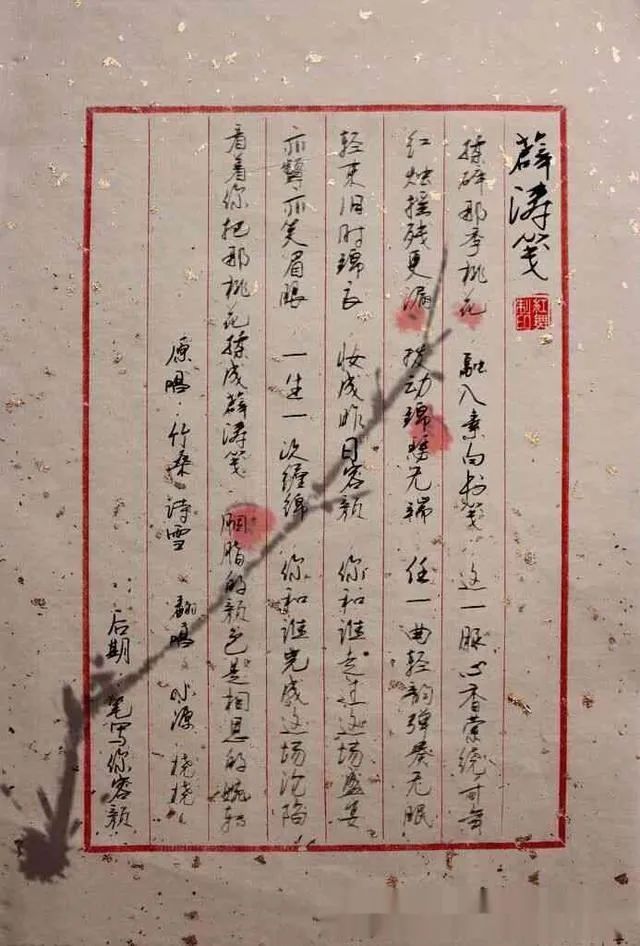 薛涛笺
揉碎那季桃花 融入素白书笺 这一脉心香萦绕
红烛摇残更漏 拨动锦瑟无端 任一曲轻韵弹奏无眠
轻束旧时锦衣 妆成昨日容颜 你和谁走过这场盛宴
亦颦亦笑眉眼 一生一次缠绵 你和谁完成这场沦陷
看着你把那桃花揉成薛涛笺 胭脂的颜色是相思的婉转
原唱·竹桑 诗雪 翻唱 源
后期·笔写你容颜